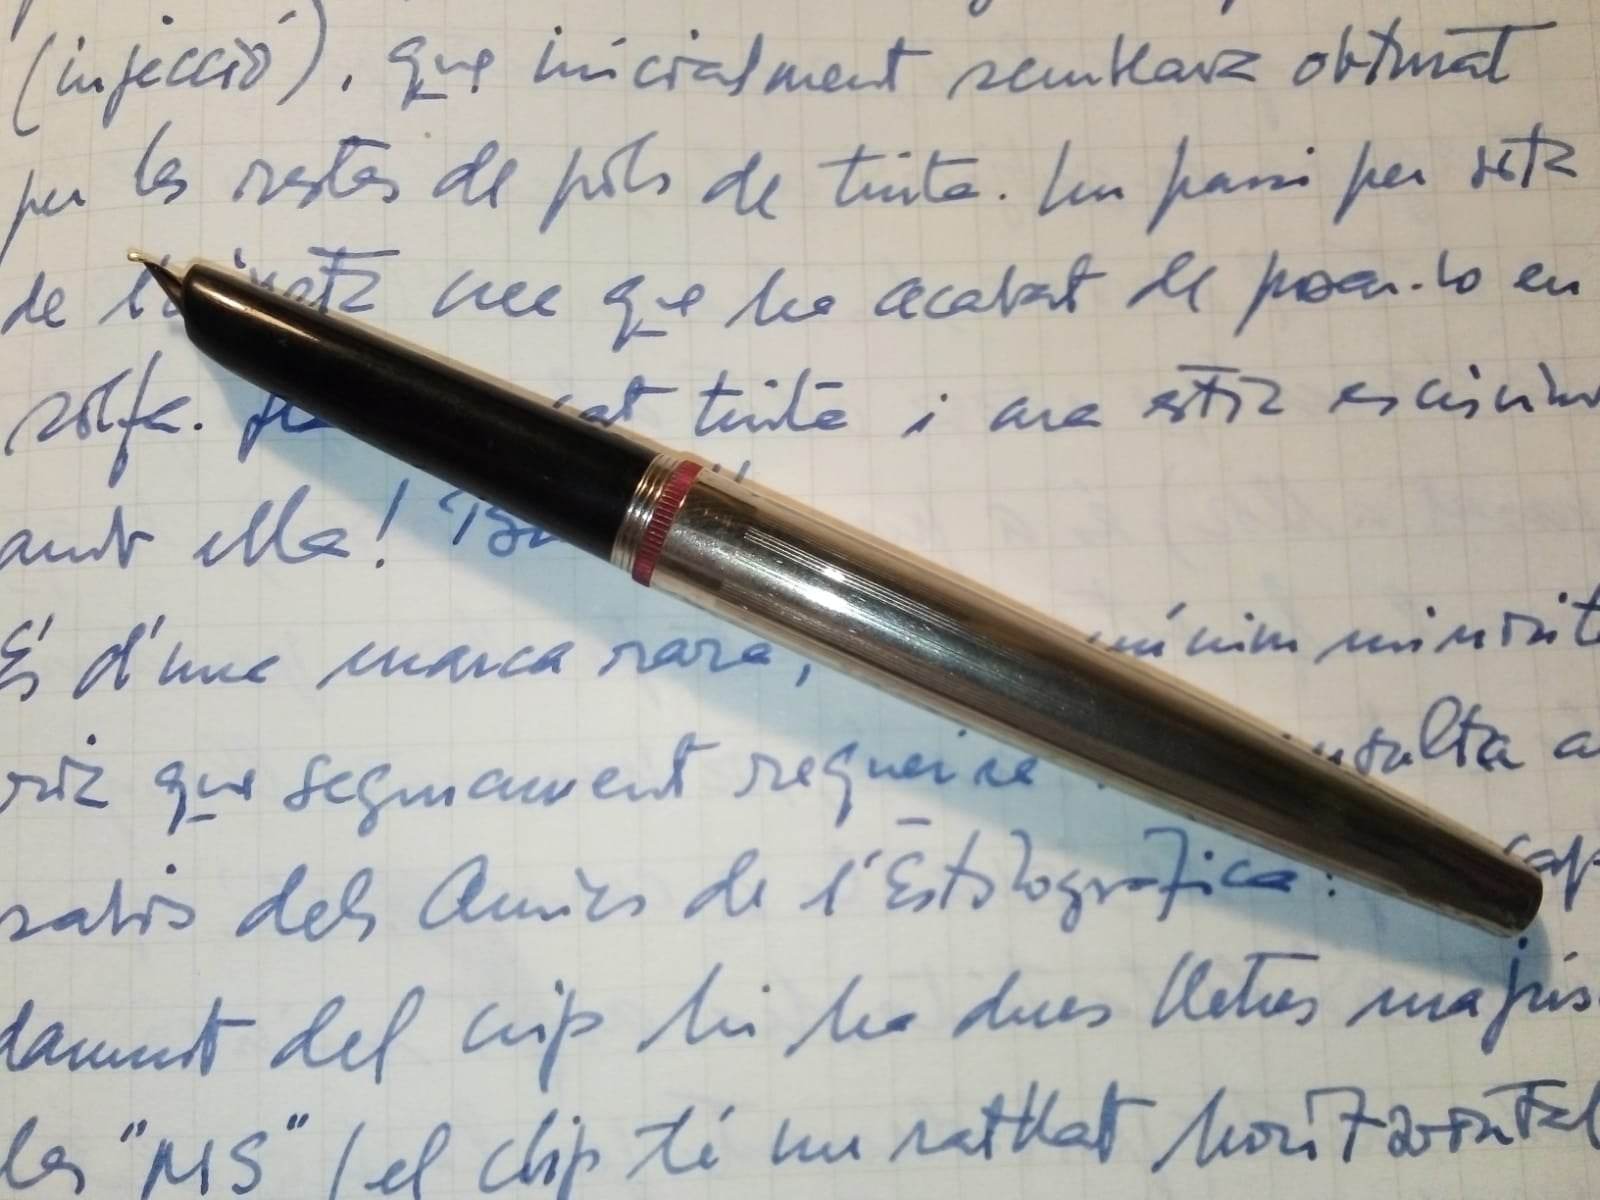 (injecció), que inicialment semblava obturat
per les restes de pols de tinta. Un passi per sota
de l'aixeta crec que ha acabat de posar-lo en
solfa. tinta i ara estic escrivint
amb ella!
És d'una marca rara, mínim minorità
ria que segurament requeri
savis dels Amics de l'Estilogràfica:
damunt del clip hi ha dues lletres majús
les "MS" (el clip té un ratllat horitzontal